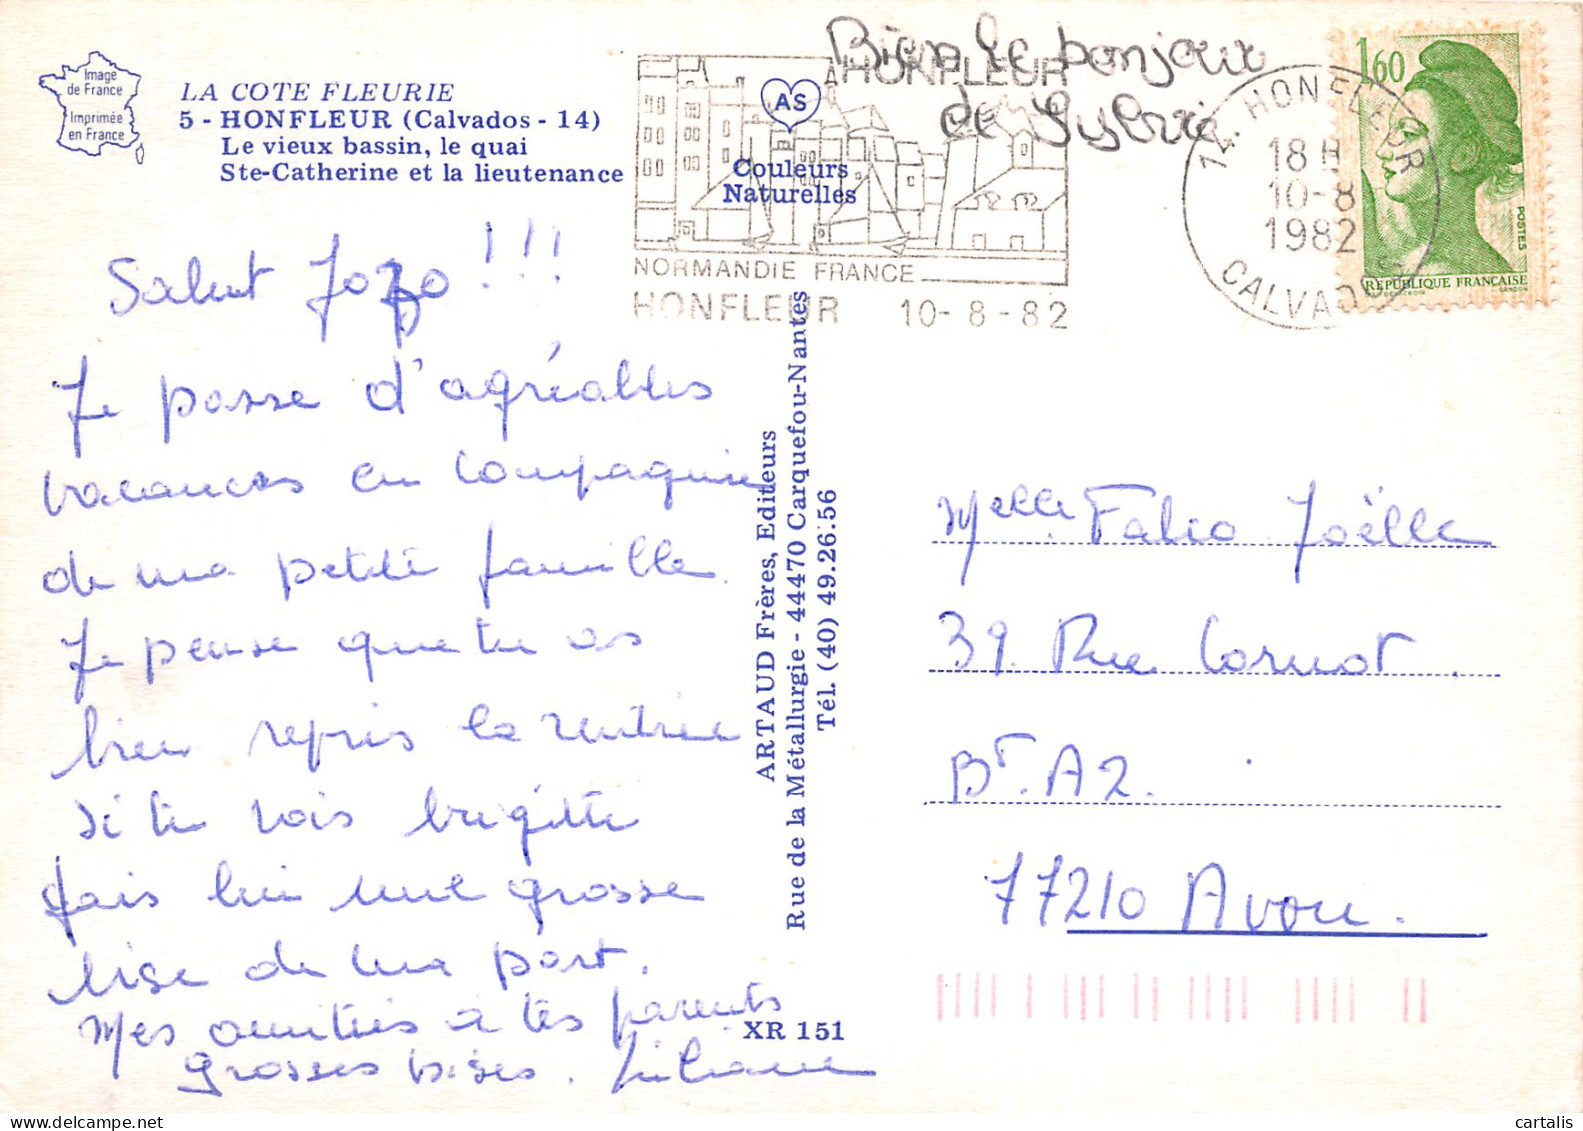 Image
de France
Imprimée
en France
LA COTE FLEURIE
5 - HONFLEUR (Calvados - 14)
Le vieux bassin, le quai
Ste-Catherine et la lieutenance
Bien le bonjour
de Sylvie
HONFLEUR
AS
Couleurs
Naturelles
NORMANDIE FRANCE
HONFLEUR 10-8-82
14. HONFLEUR
18 H
10-8
1982
CALVADOS
1,60
POSTES
RÉPUBLIQUE FRANÇAISE
Salut Jozo !!!
Je passe d'agréables
vacances en compagnie
de ma petite famille.
Je pense que tu as
bien repris la rentrée
si tu vois brigitte
fais lui une grosse
bise de ma part.
Mes amitiés à tes parents
grosses bises. Liliane
ARTAUD Frères, Editeurs
Rue de la Métallurgie - 44470 Carquefou-Nantes
Tél. (40) 49.26.56
XR 151
Melle Falco Joëlle
39. Rue Carnot.
Bt. A2.
77210 Avon.
cartalis